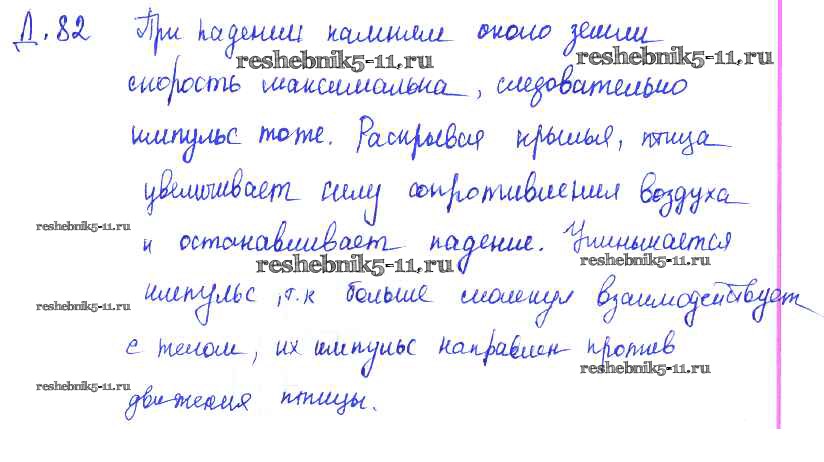 Д.82 При падении камнем около земли
reshebnik5-11.ru reshebnik5-11.ru
скорость максимальна, следовательно
импульс тоже. Раскрывая крылья, птица
увеличивает силу сопротивления воздуха
reshebnik5-11.ru
и останавливает падение. Уменьшается
reshebnik5-11.ru reshebnik5-11.ru
импульс, т.к больше молекул взаимодействует
reshebnik5-11.ru
с телом, их импульс направлен против
reshebnik5-11.ru
reshebnik5-11.ru
движения птицы.